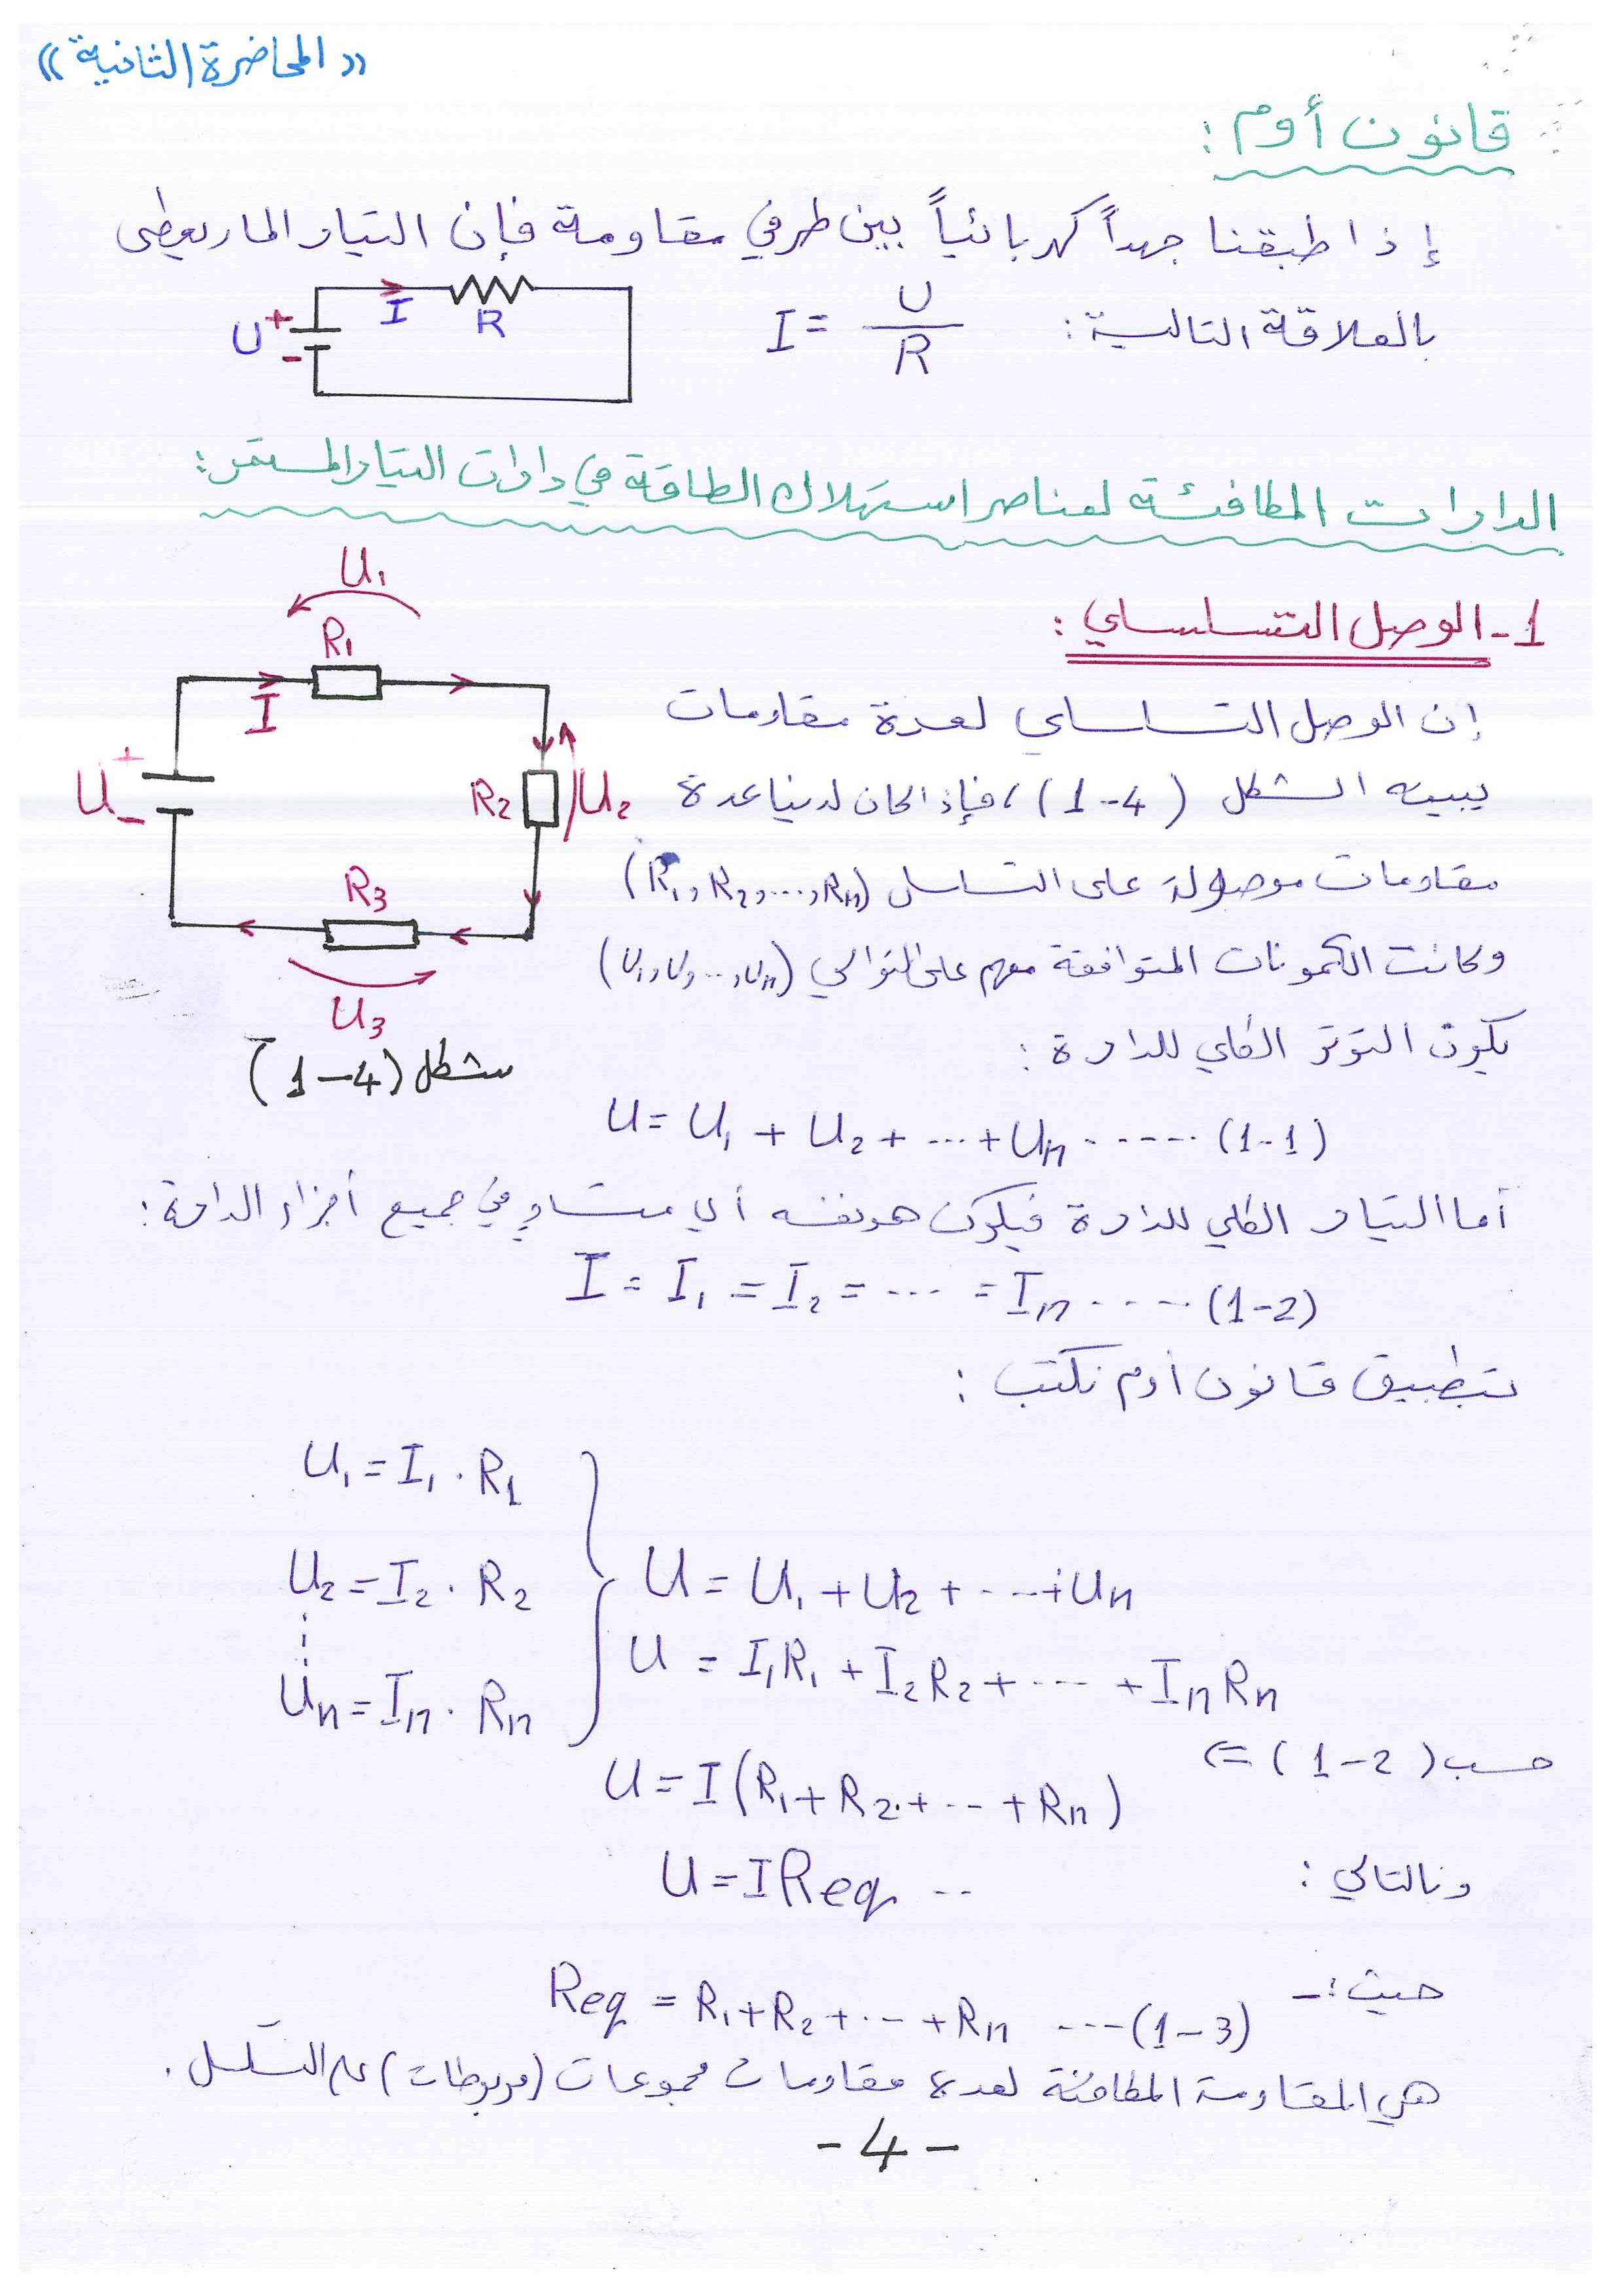 « المحاضرة الثانية »
قانون أوم :
إذا طبقنا جهداً كهربائياً بين طرفي مقاومة فإن التيار المار يعطى
بالعلاقة التالية : I = U / R
U + - I R
الدارات المكافئة لعناصر استهلاك الطاقة في دارات التيار المستمر :
1- الوصل التسلسلي :
U1 R1 I U + - R2 U2 R3 U3
شكل (1-4)
إن الوصل التسلسلي لعدة مقاومات
يبينه الشكل (1-4) ، فإذا كان لدينا عدة
مقاومات موصولة على التسلسل (R1, R2, ..., Rn)
وكانت الكمونات المتوافقة معهم على التوالي (U1, U, ..., Un)
يكون التوتر الكلي للدارة :
U = U1 + U2 + ... + Un ...... (1-1)
أما التيار الكلي للدارة فيكون هو نفسه أي متساوٍ في جميع أجزاء الدارة :
I = I1 = I2 = ... = In ..... (1-2)
بتطبيق قانون أوم نكتب :
U1 = I1 . R1
U2 = I2 . R2
U = U1 + U2 + ... + Un
⋮
U = I1R1 + I2R2 + ... + InRn
Un = In . Rn
حسب (1-2) ⇐
U = I(R1 + R2 + ... + Rn)
وبالتالي : U = I Req ..
حيث :- Req = R1 + R2 + ... + Rn ...(1-3)
هي المقاومة المكافئة لعدة مقاومات مجموعات (مربوطات) على التسلسل .
- 4 -